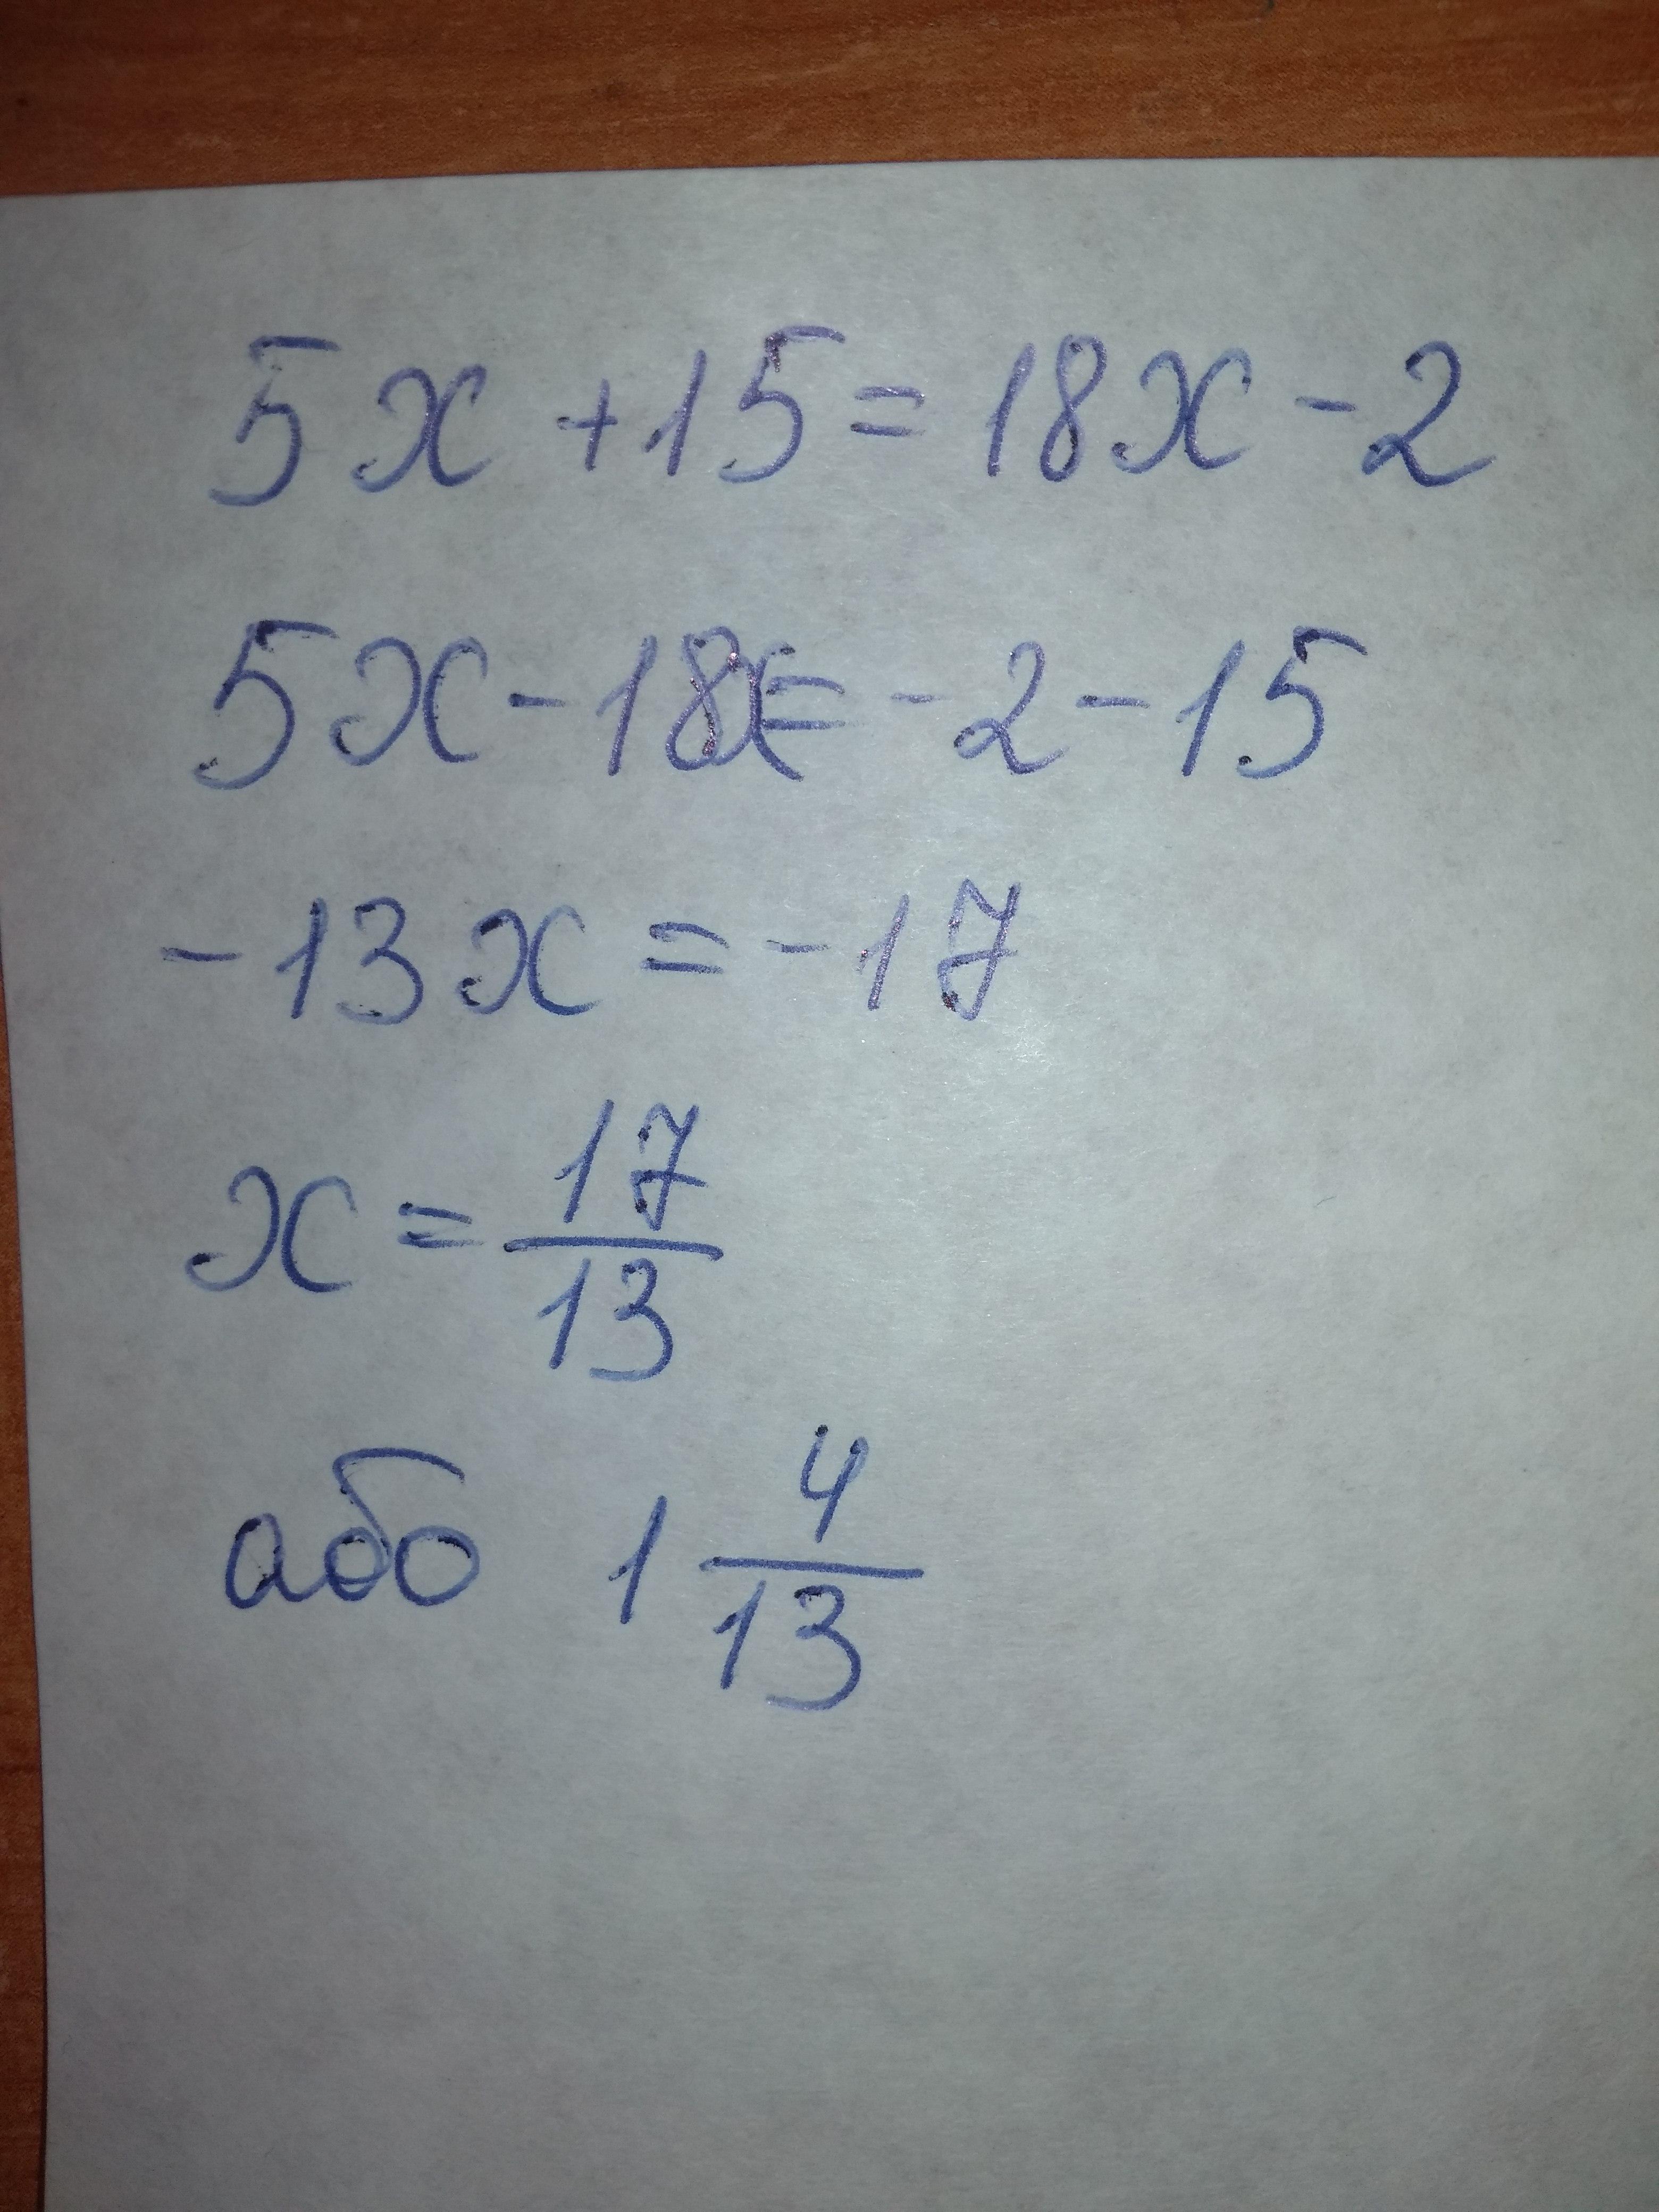 5x + 15 = 18x - 2
5x - 18x = -2 - 15
-13x = -17
x = 17/13
або 1 4/13